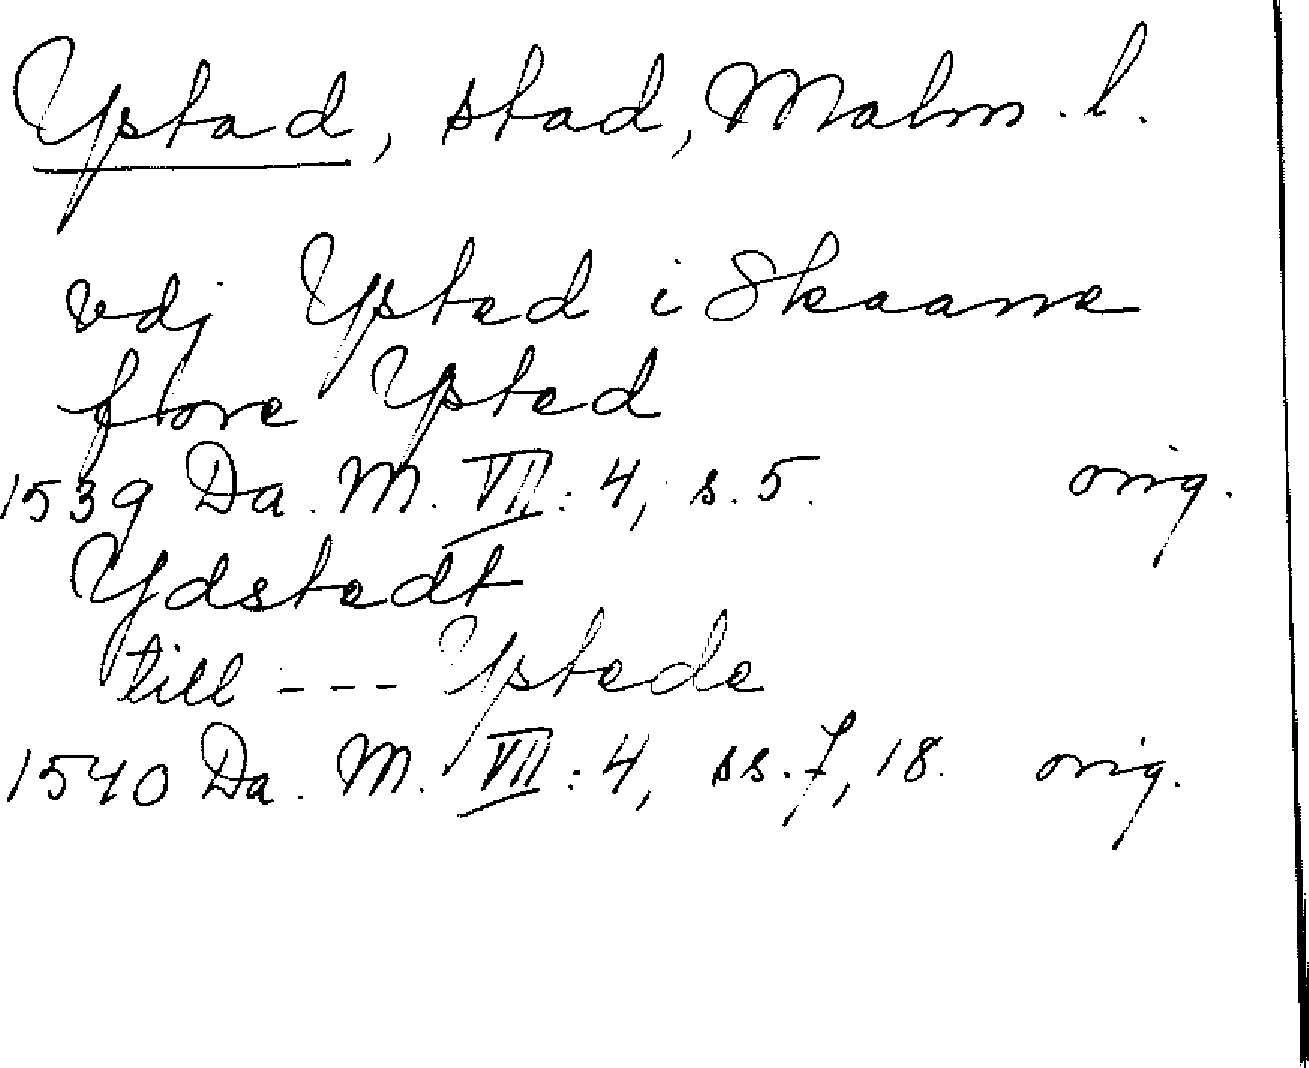 Ystad, stad, Malm. l.
vdj Ysted i Skaane
fore Ysted
1539 Da. M. VII: 4, s. 5. orig.
Ydstedt
till --- Ystede
1540 Da. M. VII: 4, ss. 7, 18. orig.